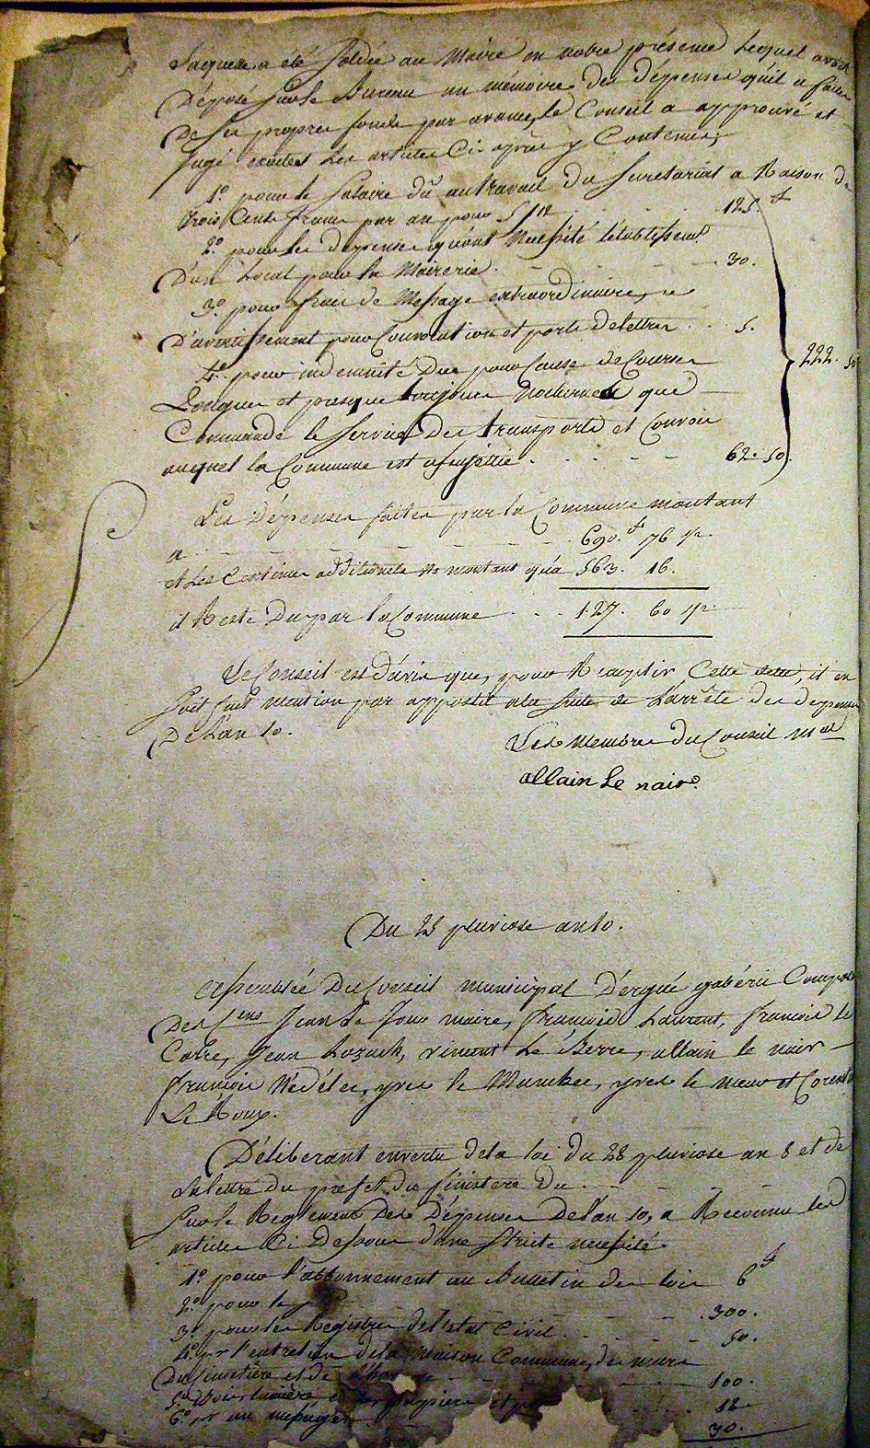 Laquelle a été soldée au Maire en notre présence lequel avoit
Déposé sur le Bureau un mémoire des dépenses qu'il a faites
De ses propres fonds par avance, le Conseil a approuvé et
jugé exactes les articles Ci après y Contenus;
1.° pour le Salaire dû au travail du Secretariat a Raison de
trois Cents francs par an pour 5/12 125.f
2.° pour les depenses qu'ont necessité l'établissemt
D'un Local pour la Mairerie. 30.
3.° pour frais de Message extraordinaire,
D'avertissement pour Convocation et porte de lettres 5.
4.° pour indemnité Due pour Causse de Courses
Longues et presque toujours Nocturnes que
Commande le Service Des transports et Convois
auquel la Commune est assujettie. 62. 50.
222. 50
Les Dépenses faites par la Commune montant
a 690.f 76
et Les Centimes additionels ne montant qu'a 563. 16.
il Reste Du par la Commune 127. 60
Le Conseil est d'avis que, pour Remplir Cette dette, il en
soit fait mention par apposti a la suite de L'arrêté des depenses
De L'an 10.
Les Membres du Conseil mal
allain Le nair.
Du 25 pluviose an 10.
Assemblée Du Conseil municipal D'ergué gabéric Composé
Des Cens Jean Le Jour maire, François Laurent, francois Le
Corre, Jean Lozach, vincent Le Berre, allain le nair
françois Nédélec, yves le Manchec, yves le meur et Corentin
Le Roux.
Déliberant en vertu de la loi du 28 pluviose an 8 et de
la lettre du prefet du finistere du
Sur le Reglement Des Dépenses De l'an 10, a Reconnu les
articles Ci Dessous d'une stricte necessité.
1.° pour l'abbonnement au Bulletin des loix 6f
2.° pour le 300.
3.° pour les Registres de l'etat Civil 50.
4.° pr l'entretien de la maison Commune, des murs
Du Cimetière et de 100.
5.° Bois, lumière papiers 12
6.° pr un messager 30.